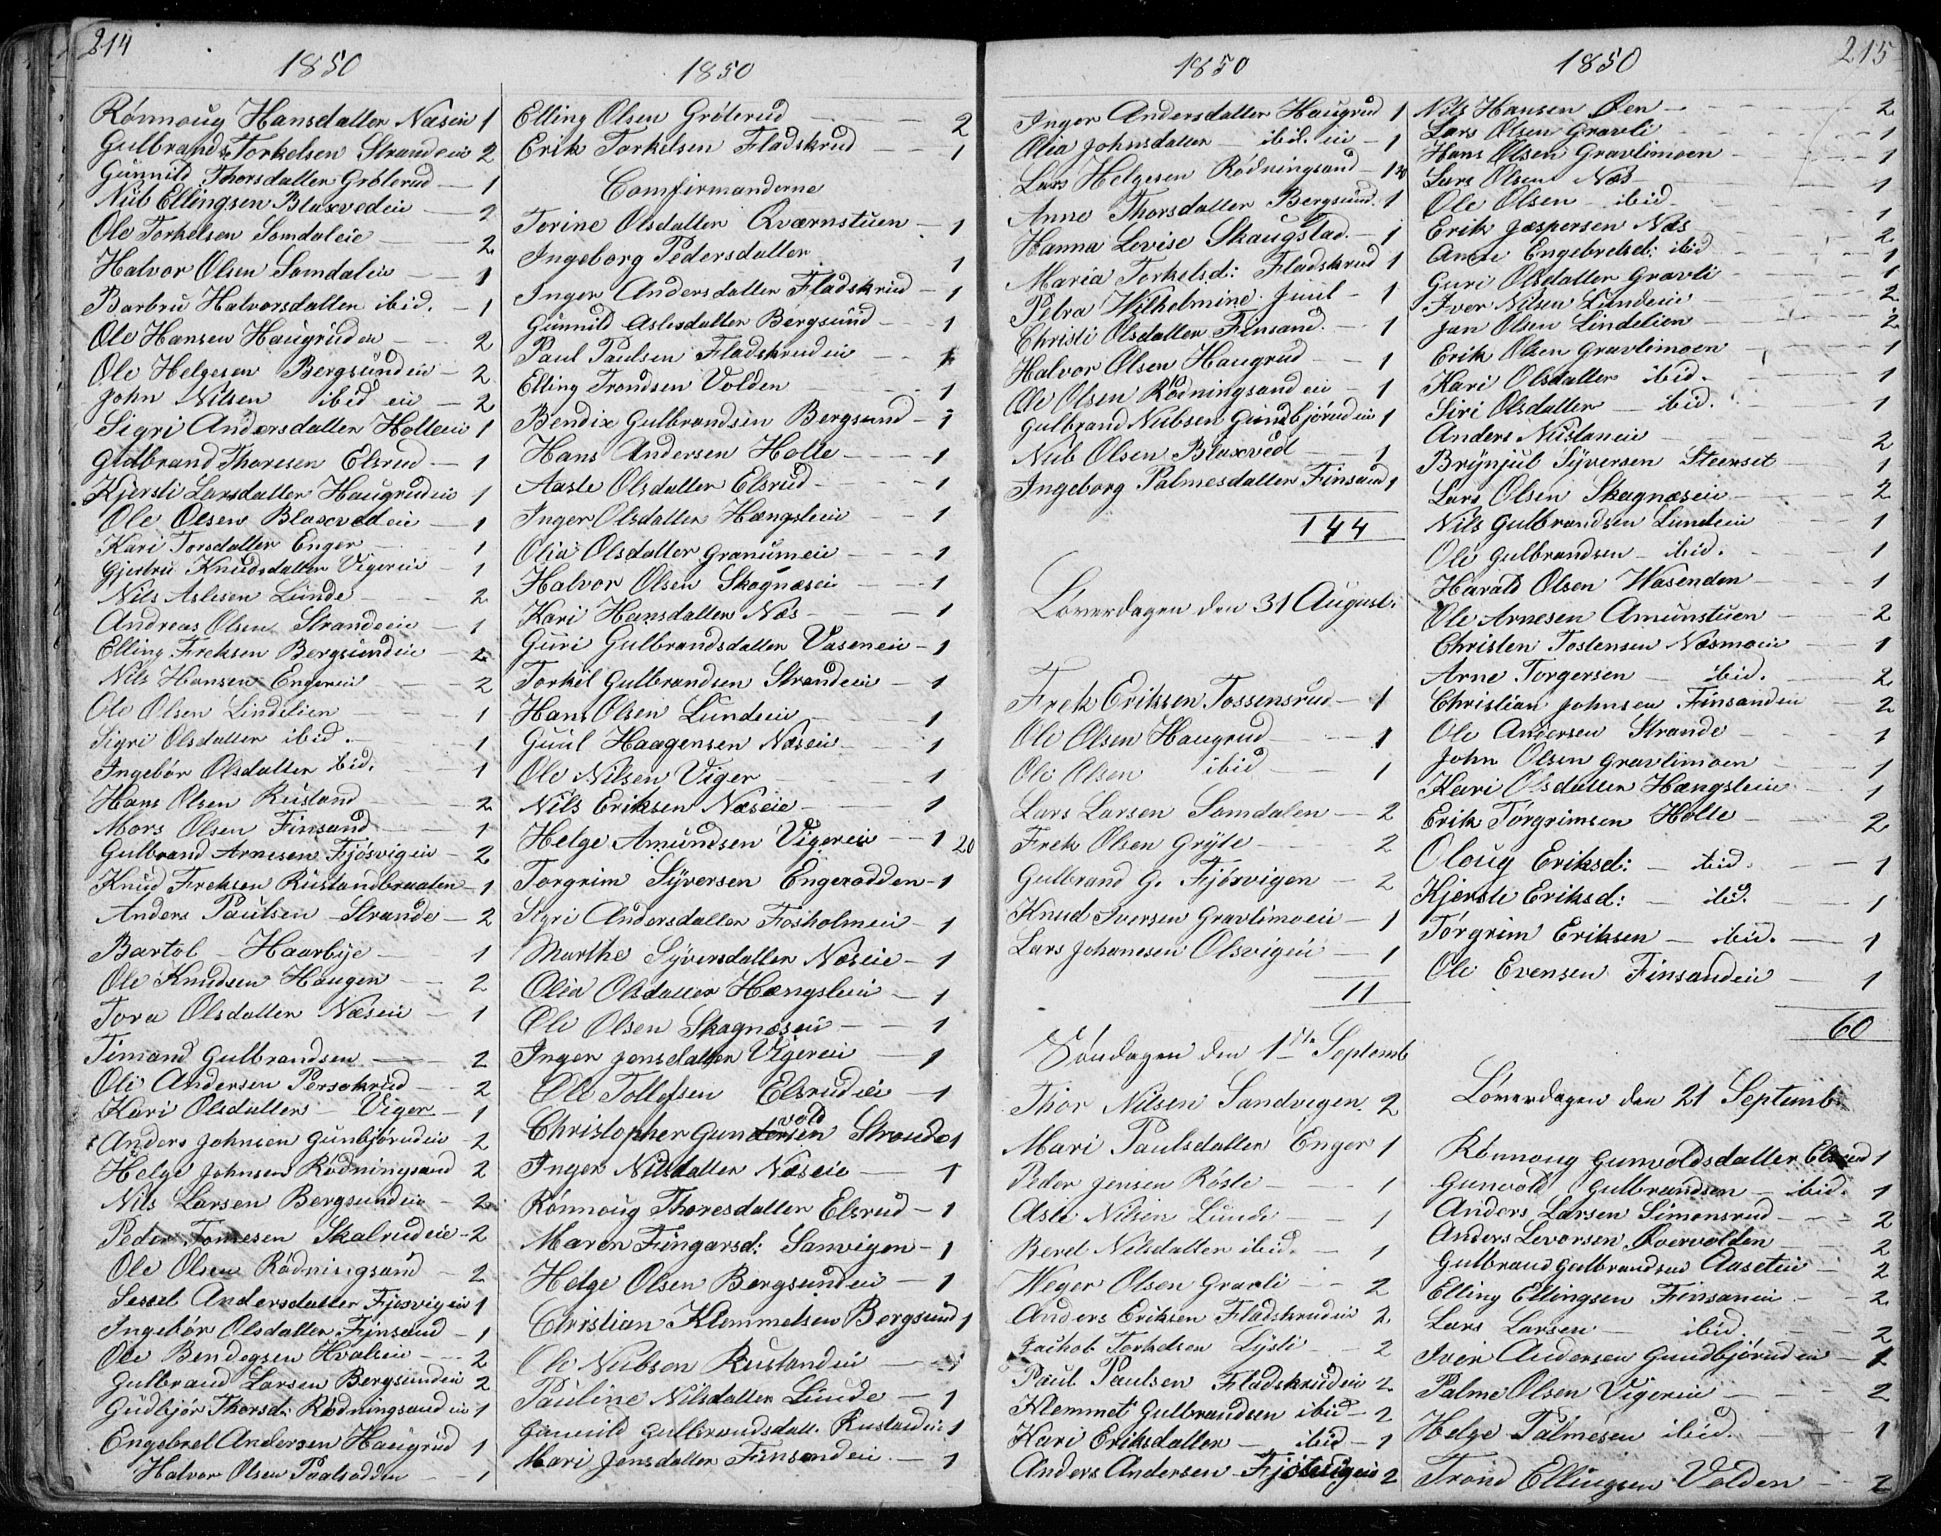 214
1850
Rønnoug Hansdatter Næseie 1
Gulbrand Torkelsen Strandeie 2
Gunnild Thorsdatter Grøterud — 1
Nub Ellingsen Blaxvedeie — 2
Ole Torkelsen Somdaleie — 2
Halvor Olsen Somdaleie — 1
Barbru Halvorsdatter ibid. — 1
Ole Hansen Haugruden — 2
Ole Helgesen Bergsundeie — 2
John Nilsen ibid eie — 2
Sigri Andersdatter Holleeie 1
Gulbrand Thoresen Elsrud — 1
Kjersti Larsdatter Haugrudeie 1
Ole Olsen Blaxvedeie — 1
Kari Torsdatter Enger — 1
Gjertru Knudsdatter Vigereie — 1
Nils Aslesen Lunde — 2
Andreas Olsen Strandeie — 1
Elling Freksen Bergsundeie — 2
Nils Hansen Engereie — 2
Ole Olsen Lindelien — 1
Sigri Olsdatter ibid. — 1
Ingebør Olsdatter ibid. — 1
Hans Olsen Rustand — 2
Mors Olsen Finsand — 1
Gulbrand Arnesen Fjøsvigeie — 2
Knud Freksen Rustandbraaten — 1
Anders Paulsen Strande — 2
Bartol — Haarbye — 1
Ole Knudsen Haugen — 2
Tora Olsdatter Næseie — 1
Timand Gulbrandsen — 2
Ole Andersen Persokrud — 2
Kari Olsdatter — Viger — 1
Anders Johnsen Gunbjørudeie — 2
Helge Johnsen Rødningsand 2
Nils Larsen Bergsundeie — 2
Peder Tomesen Skalrudeie — 2
Ole Olsen Rødningsand — 2
Sescel Andersdatter Fjøsvigeie 1
Ingebør Olsdatter Finsand — 1
Ole Bendixsen Hvaleeie — 2
Gulbrand Larsen Bergsundeie 2
Gudbjør Thorsd: Rødningsandeie 1
Engebret Andersen Haugrud 1
Halvor Olsen Paalsodden — 1
1850
Elling Olsen Grøterud — 2
Erik Torkelsen Fladskrud — 1
Comfirmanderne
Torine Olsdatter Qværnstuen — 1
Ingeborg Pedersdatter 1
Inger Andersdatter Fladskrud — 1
Gunnild Aslesdatter Bergsund — 1
Paul Paulsen Fladskrudeie — 1
Elling Trondsen Volden — 1
Bendix Gulbrandsen Bergsund — 1
Hans Andersen Holle — 1
Aasle Olsdatter Elsrud — 1
Inger Olsdatter Hængsleeie 1
Olia Olsdatter Granumeie — 1
Halvor Olsen Skagnæseie — 1
Kari Hansdatter Næs — 1
Guri Gulbrandsdatter Vaseneie — 1
Torkil Gulbrandsen Strandeie — 1
Hans Olsen Lundeeie — 1
Guul Haagensen Næseie — 1
Ole Nilsen Viger — 1
Nils Eriksen Næseie — 1
Helge Amundsen Vigereie — 1 20
Torgrim Syversen Engerodden — 1
Sigri Andersdatter Fosholmeie — 1
Marthe Syversdatter Næseie — 1
Olia Olsdatter Hængsleeie — 1
Ole Olsen Skagnæseie — 1
Inger Jensdatter Vigereie — 1
Ole Tollefsen Elsrudeie — 1
Christopher Gundersen vold Strande 1
Inger Nilsdatter Næseie — 1
Rønnoug Thoresdatter Elsrud — 1
Maren Fingarsd: Sanvigen — 1
Helge Olsen Bergsundeie — 1
Christian Klemmetsen Bergsund 1
Ole Nubson Rustandeie — 1
Pauline Nilsdatter Lunde — 1
Gunnild Gulbrandsdatt. Rustandeie 1
Mari Jensdatter Finsandeie — 1
1850
Inger Andersdatter Haugrud 1
Olia Johnsdatter — ibid. eie — 1
Lars Helgesen Rødningsand — 1
Anne Thorsdatter Bergsund. 1
Hanna Lovise Skaugstad. — 1
Maria Torkelsd: Fladskrud 1
Petra Wilhelmine Juul — 1
Christi Olsdatter Finsand. — 1
Halvor Olsen Haugrud — 1
Ole Olsen Rødningsandeie — 1
Gulbrand Nubsen Gundbjørudeie 1
Nub Olsen Blaxved — 1
Ingeborg Palmesdatter Finsand 1
144
Løverdagen den 31 August.
Frek Eriksen Tossensrud — 1
Ole Olsen Haugrud — 1
Ole Olsen ibid — 1
Lars Larsen Somdalen — 2
Frek Olsen Gryte — 2
Gulbrand G. Fjøsvigen — 2
Knud Iversen Gravlimoeie — 1
Lars Johanesen Olsvigeie — 1
11
Søndagen den 1ste Septemb
Thor Nilsen Sandvigen. 2
Mari Paulsdatter Enger 1
Peder Jensen Røste — 1
Asle Nilsen Lunde — 1
Beret Nilsdatter ibid. — 1
Weger Olsen Gravli — 2
Anders Eriksen Fladskrudeie 2
Jackob Torkelsen Lysli — 2
Paul Paulsen Fladskrudeie 2
Klemmet Gulbrandsen ibid — 2
Kari Eriksdatter — ibid — 1
Anders Andersen Fjøsvigeie 2
1850
215
Nils Hansen Øen — 2
Lars Olsen Gravli — 1
Hans Olsen Gravlimoen — 1
Lars Olsen Næs — 1
Ole Olsen — ibid. — 1
Erik Jæspersen Næs — 2
Anne Engebretsd: ibid — 1
Guri Olsdatter Gravli — 1
Iver Nilsen Lundeeie — 2
Jan Olsen Lindelien — 2
Erik Olsen Gravlimoen — 1
Kari Olsdatter ibid. — 1
Siri Olsdatter — ibid. 1
Anders Nustaneie — 2
Brynjul Syversen Steenset — 1
Lars Olsen Skagnæseie — 2
Nils Gulbrandsen Lundeie 1
Ole Gulbrandsen — ibid. — 1
Harald Olsen Wasenden — 1
Ole Arnesen Amunstuen — 2
Christen Tostensen Næsmoeie — 1
Arne Torgersen — ibid. — 2
Christian Johnsen Finsandeie — 2
Ole Andersen Strande — 1
John Olsen Gravlimoen — 1
Kari Olsdatter Hængsleeie — 1
Erik Torgrimsen Holle — 2
Oloug Eriksd: — ibid. — 1
Kjersti Eriksd: — ibid. — 1
Torgrim Eriksen — ibid. — 1
Ole Evensen Finsandeie — 1
60
Løverdagen den 21 Septemb.
Rønnoug Gunvoldsdatter Elsrud 1
Gunvold Gulbrandsen — ibid. 1
Anders Larsen Simonsrud — 2
Anders Levorsen Qvervolden — 2
Gulbrand Gulbrandsen Aaseteie — 2
Elling Ellingsen Finsaneie — 2
Lars Larsen — ibid. — 2
Iver Andersen Gundbjørudeie — 1
Palme Olsen Vigereie — 2
Helge Palmesen ibid. — 1
Trond Ellingsen Volden — 2